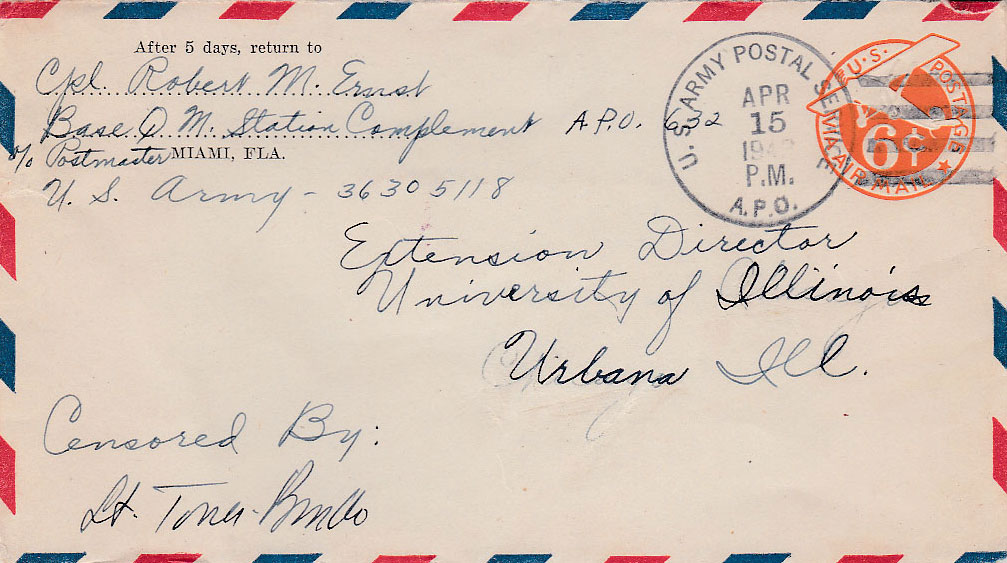 After 5 days, return to
Cpl. Robert M. Ernst
Base Q M. Station Complement A.P.O. 632
% Postmaster MIAMI, FLA.
U. S. Army - 36305118
U. S. ARMY POSTAL SERVICE
APR
15
P.M.
A.P.O.
U.S. POSTAGE
6¢
VIA AIR MAIL
Extension Director
University of Illinois
Urbana Ill.
Censored By:
Lt.